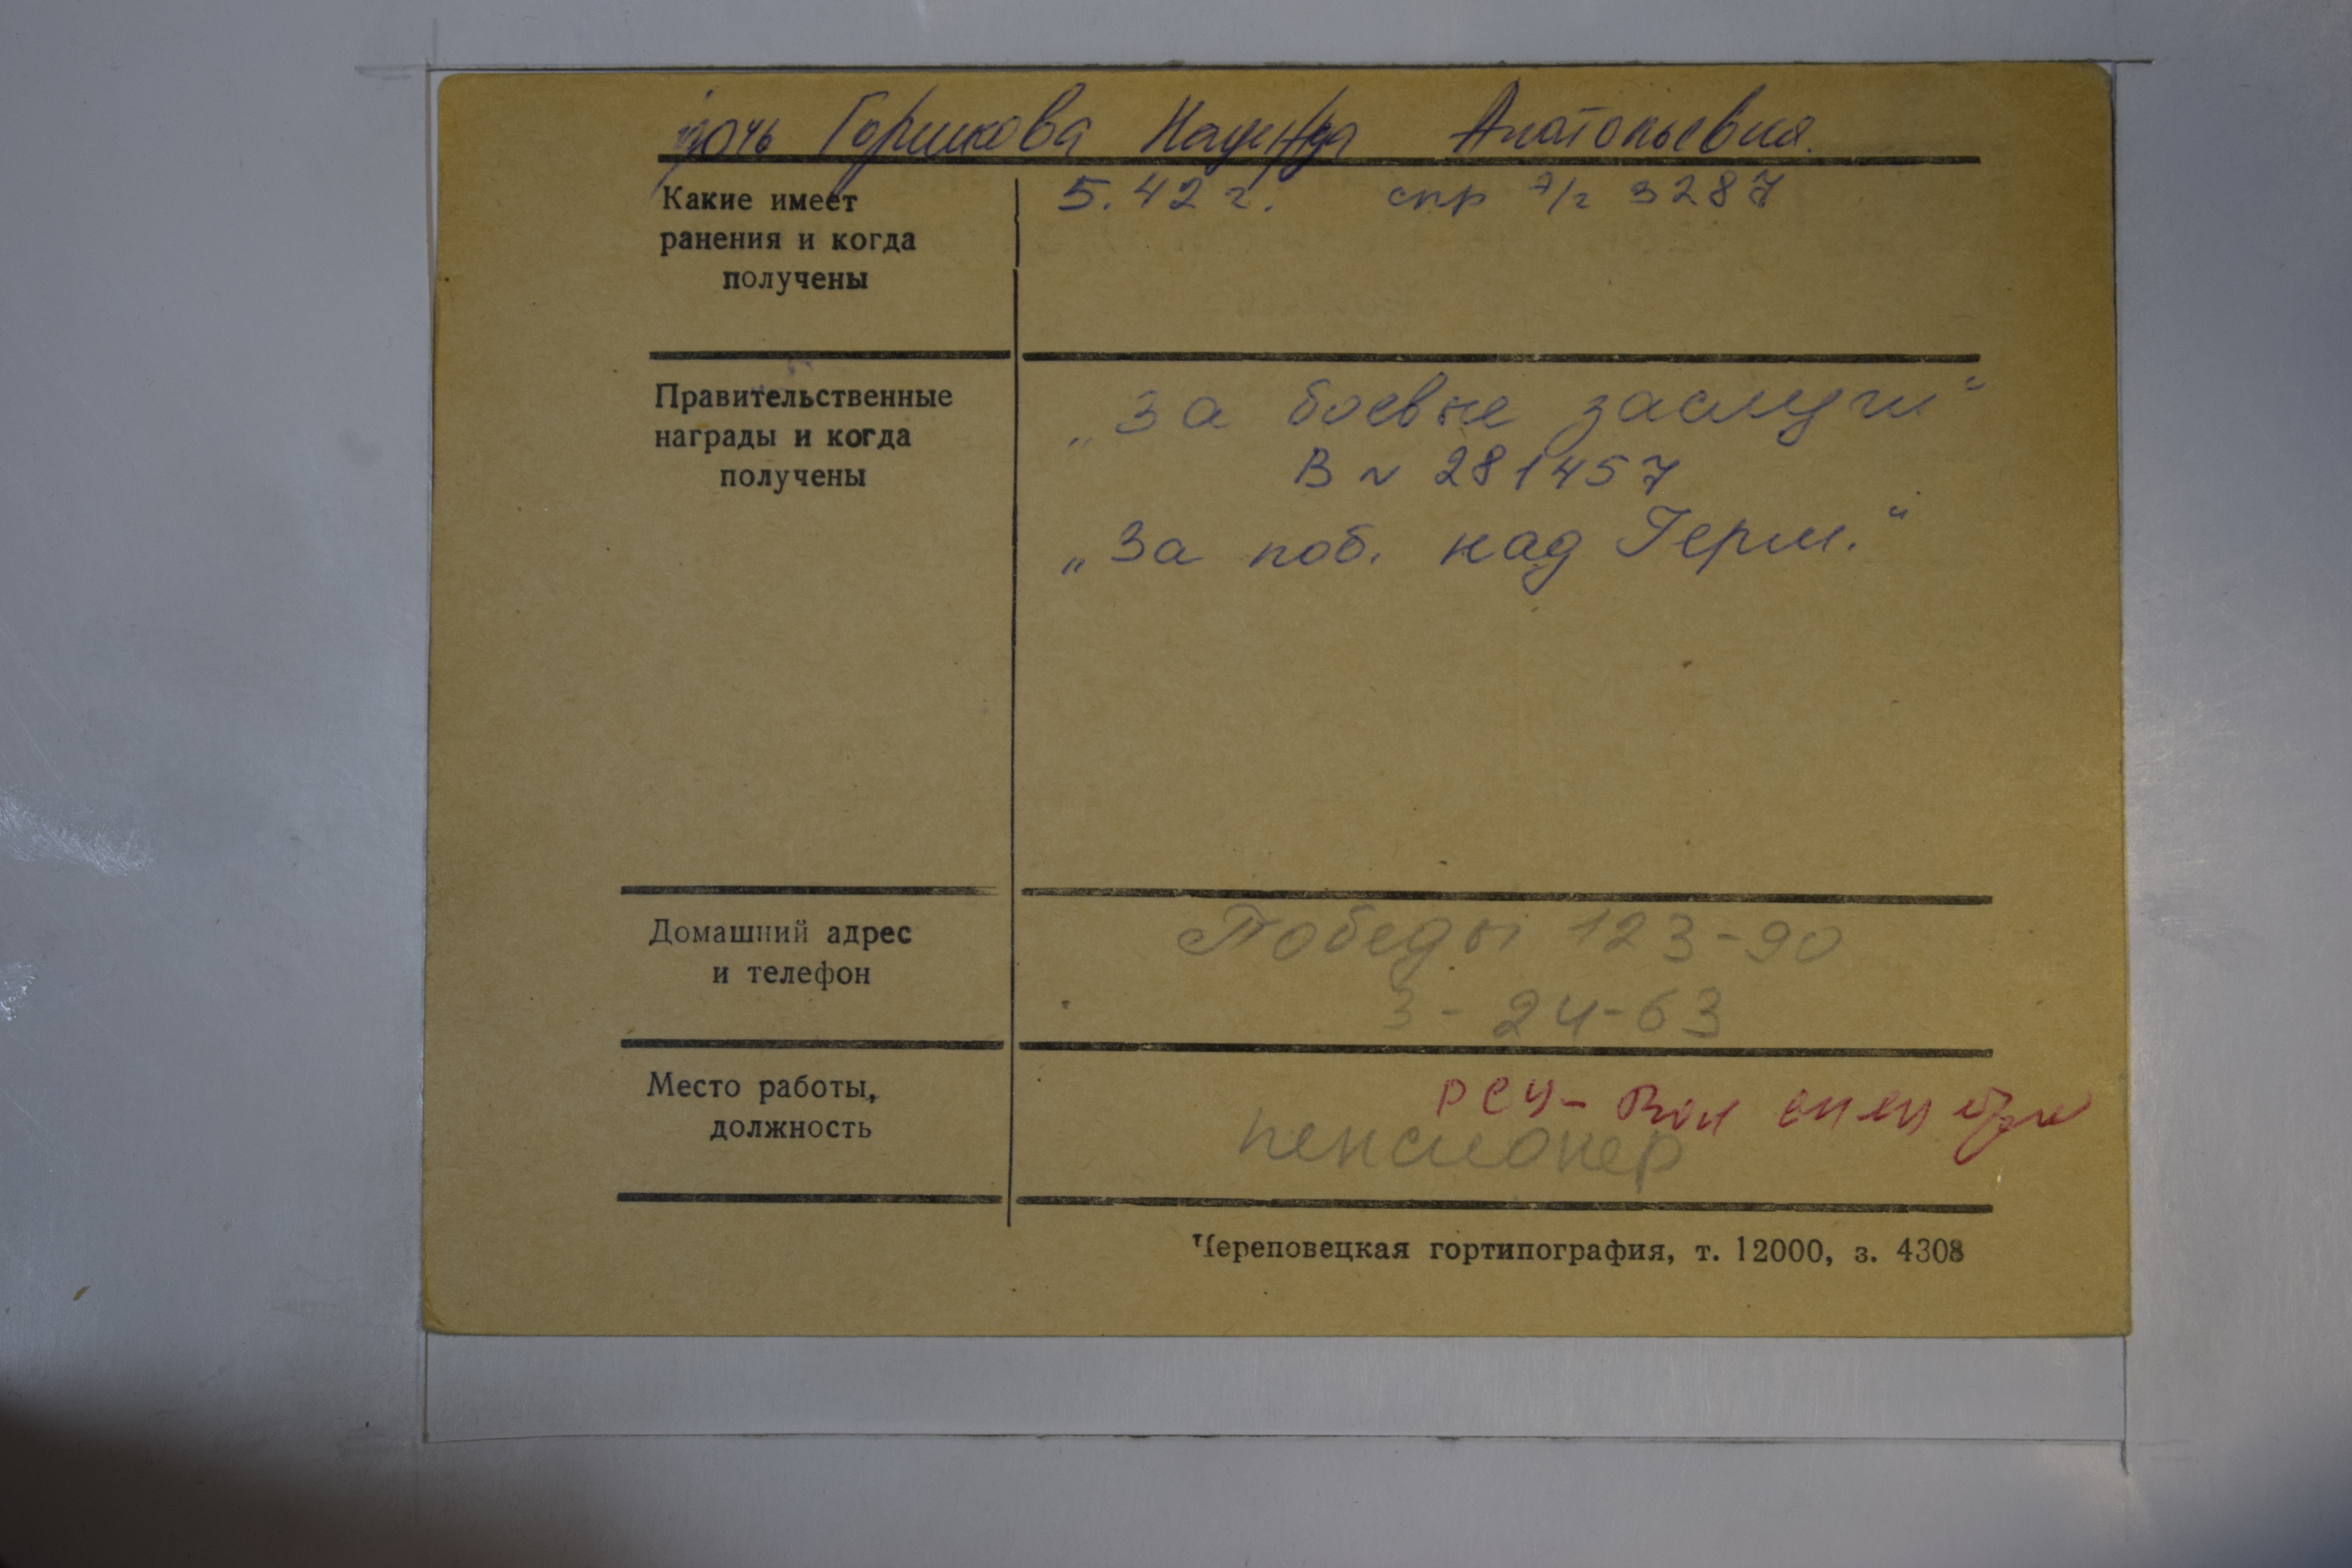 дочь Горшкова Надежда Анатольевна.
Какие имеет
ранения и когда
получены
5.42 г. спр э/г 3287
Правительственные
награды и когда
получены
„За боевые заслуги“
В № 281457
„За поб. над Герм.“
Домашний адрес
и телефон
Победы 123-90
3-24-63
Место работы,
должность
РСУ-
пенсионер
Череповецкая гортипография, т. 12000, з. 4308